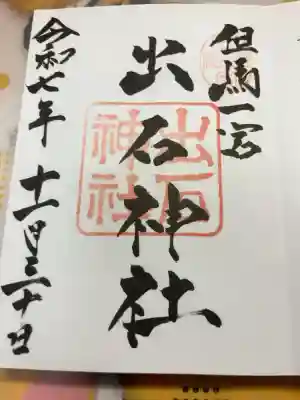 但馬一宮
出石神社
出石
神社
令和七年 十一月三十日